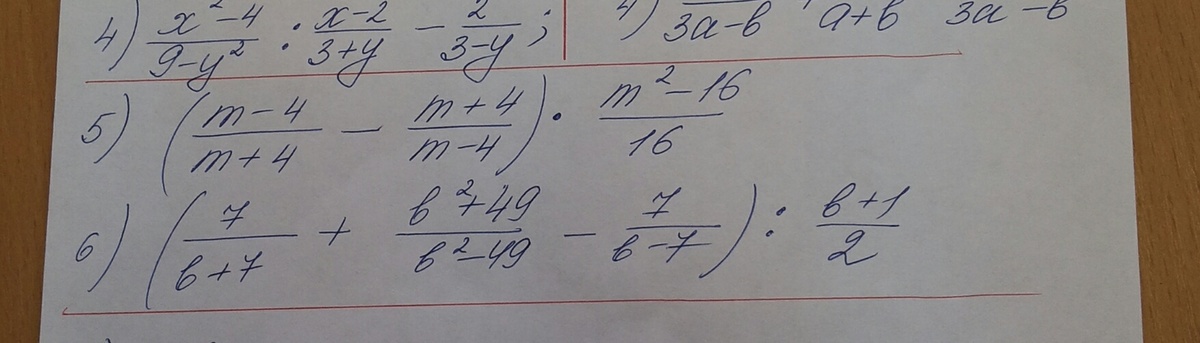 4) (x² - 4)/(9 - y²) : (x - 2)/(3 + y) - 2/(3 - y);
4) /(3a - b) /(a + b) /(3a - b)
5) ((m - 4)/(m + 4) - (m + 4)/(m - 4)) · (m² - 16)/16
6) (7/(b + 7) + (b² + 49)/(b² - 49) - 7/(b - 7)) : (b + 1)/2